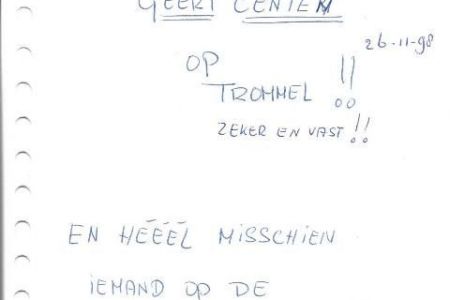 GEERT CENTEN
26-11-98
OP
TROMMEL !!
ZEKER EN VAST !!
EN HÉÉÉL MISSCHIEN
IEMAND OP DE